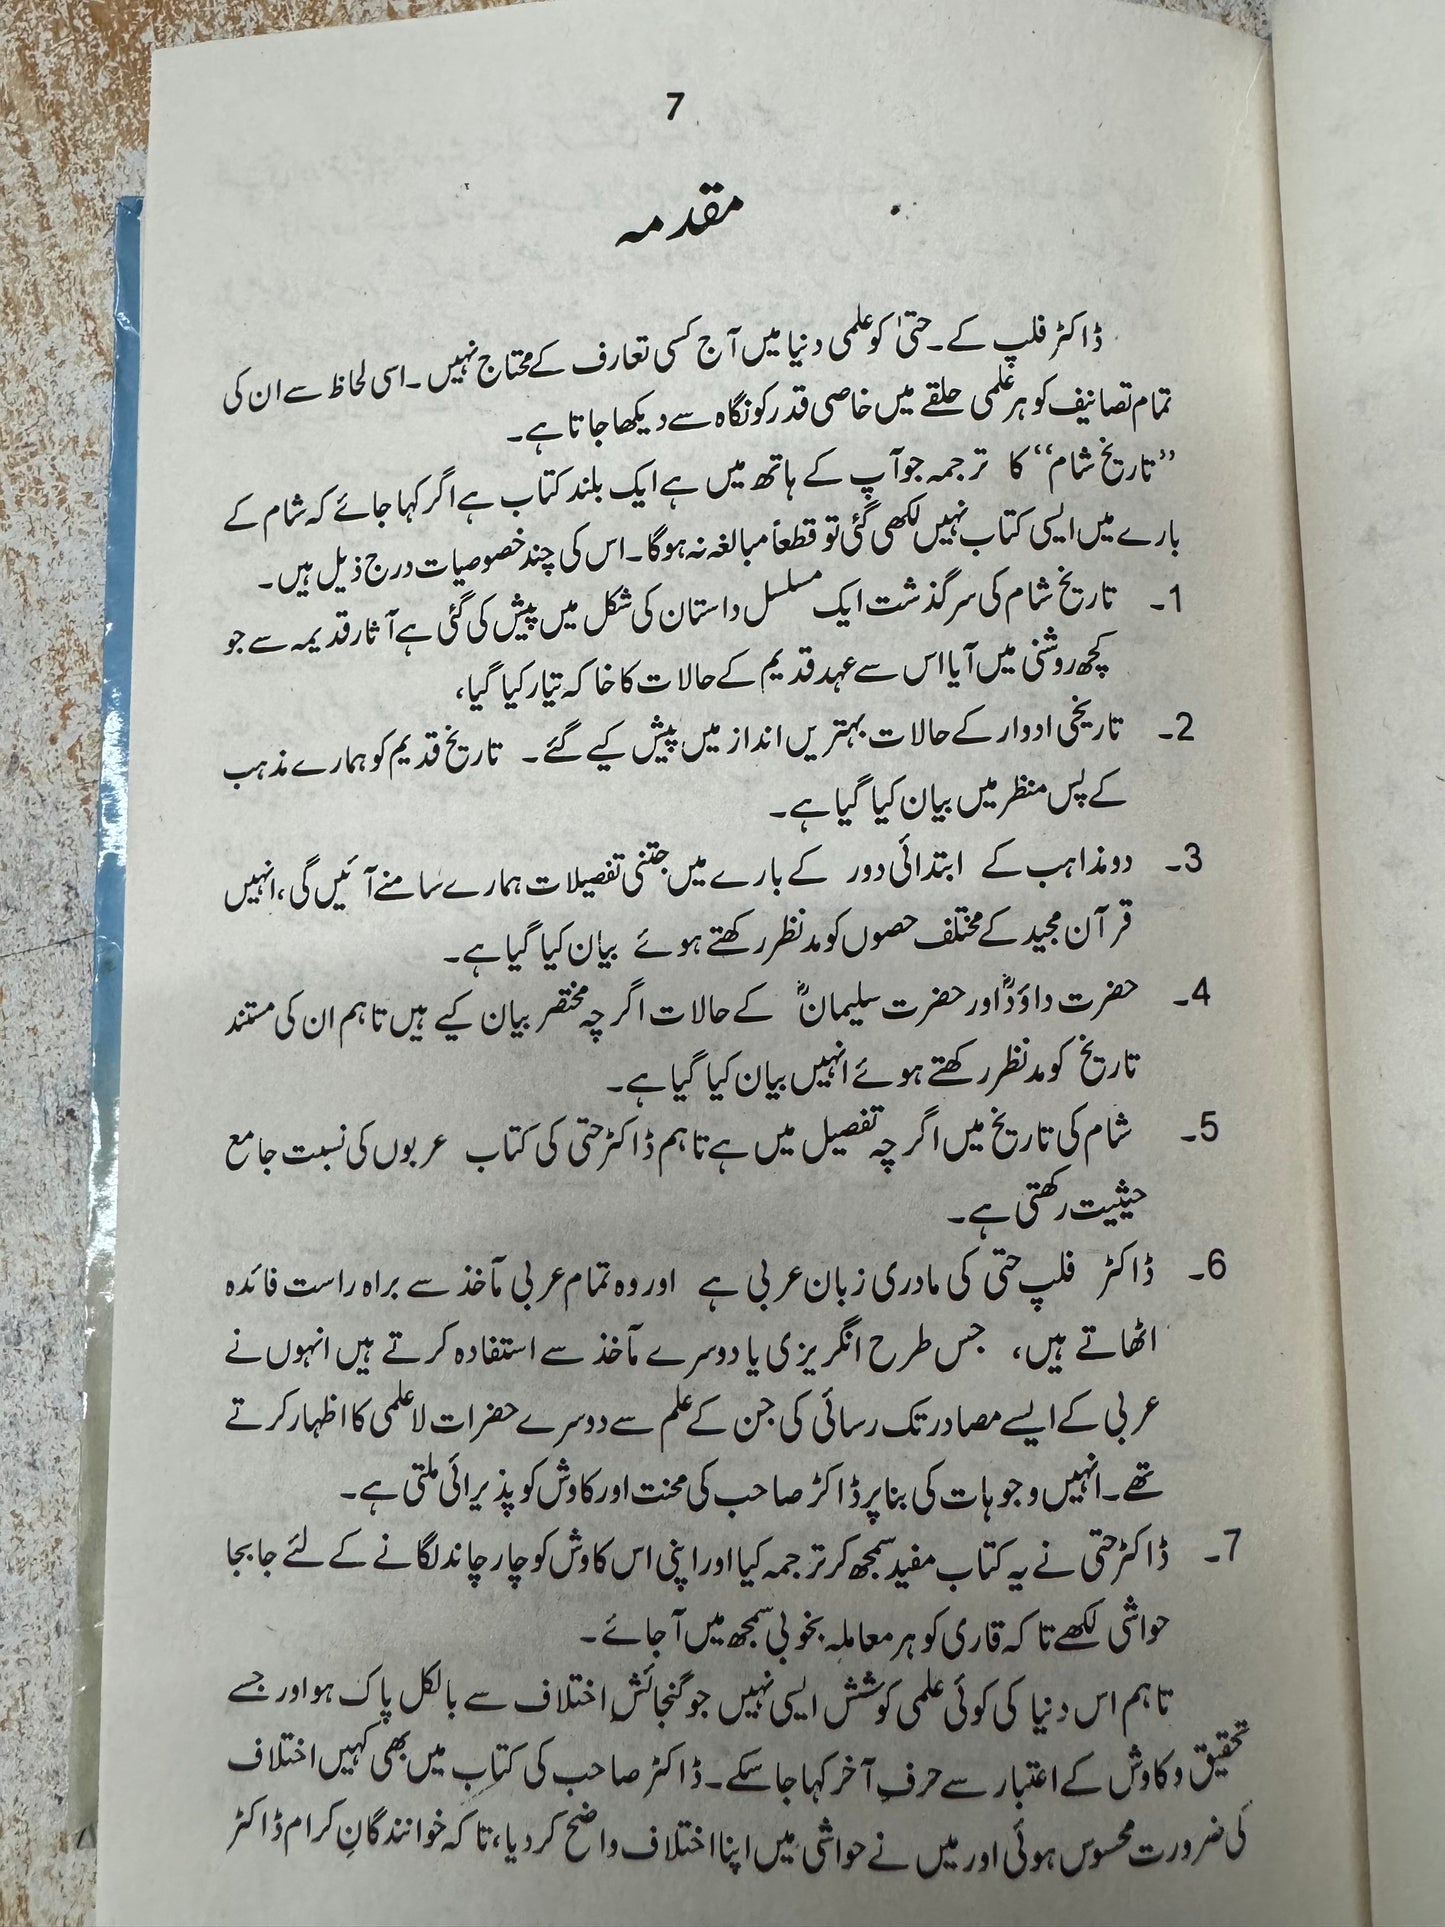 7
مقدمہ
ڈاکٹر فلپ کے۔ حتیٰ کو علمی دنیا میں آج کسی تعارف کے محتاج نہیں۔ اسی لحاظ سے ان کی
تمام تصانیف کو ہر علمی حلقے میں خاصی قدر کو نگاہ سے دیکھا جاتا ہے۔
”تاریخ شام“ کا ترجمہ جو آپ کے ہاتھ میں ہے ایک بلند کتاب ہے اگر کہا جائے کہ شام کے
بارے میں ایسی کتاب نہیں لکھی گئی تو قطعاً مبالغہ نہ ہوگا۔ اس کی چند خصوصیات درج ذیل ہیں۔
1۔ تاریخ شام کی سرگذشت ایک مسلسل داستان کی شکل میں پیش کی گئی ہے آثار قدیمہ سے جو
کچھ روشنی میں آیا اس سے عہد قدیم کے حالات کا خاکہ تیار کیا گیا،
2۔ تاریخی ادوار کے حالات بہتریں انداز میں پیش کیے گئے۔ تاریخ قدیم کو ہمارے مذہب
کے پس منظر میں بیان کیا گیا ہے۔
3۔ دو مذاہب کے ابتدائی دور کے بارے میں جتنی تفصیلات ہمارے سامنے آئیں گی، انہیں
قرآن مجید کے مختلف حصوں کو مدنظر رکھتے ہوئے بیان کیا گیا ہے۔
4۔ حضرت داؤدؑ اور حضرت سلیمانؑ کے حالات اگرچہ مختصر بیان کیے ہیں تاہم ان کی مستند
تاریخ کو مدنظر رکھتے ہوئے انہیں بیان کیا گیا ہے۔
5۔ شام کی تاریخ میں اگرچہ تفصیل میں ہے تاہم ڈاکٹر حتی کی کتاب عربوں کی نسبت جامع
حیثیت رکھتی ہے۔
6۔ ڈاکٹر فلپ حتی کی مادری زبان عربی ہے اور وہ تمام عربی مآخذ سے براہ راست فائدہ
اٹھاتے ہیں، جس طرح انگریزی یا دوسرے مآخذ سے استفادہ کرتے ہیں انہوں نے
عربی کے ایسے مصادر تک رسائی کی جن کے علم سے دوسرے حضرات لاعلمی کا اظہار کرتے
تھے۔ انہیں وجوہات کی بنا پر ڈاکٹر صاحب کی محنت اور کاوش کو پذیرائی ملتی ہے۔
7۔ ڈاکٹر حتی نے یہ کتاب مفید سمجھ کر ترجمہ کیا اور اپنی اس کاوش کو چار چاند لگانے کے لئے جابجا
حواشی لکھے تاکہ قاری کو ہر معاملہ بخوبی سمجھ میں آجائے۔
تاہم اس دنیا کی کوئی علمی کوشش ایسی نہیں جو گنجائشِ اختلاف سے بالکل پاک ہو اور جسے
تحقیق و کاوش کے اعتبار سے حرفِ آخر کہا جاسکے۔ ڈاکٹر صاحب کی کتاب میں بھی کہیں اختلاف
کی ضرورت محسوس ہوئی اور میں نے حواشی میں اپنا اختلاف واضح کر دیا، تاکہ خوانندگانِ کرام ڈاکٹر